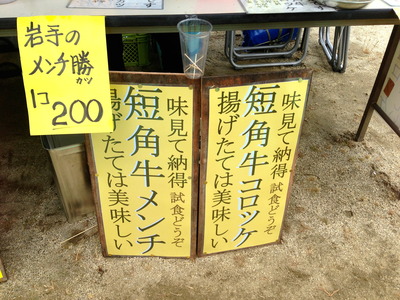 岩手の
メンチ勝カツ
1コ200
味見て納得 試食どうぞ
短角牛コロッケ
揚げたては美味しい
味見て納得 試食どうぞ
短角牛メンチ
揚げたては美味しい